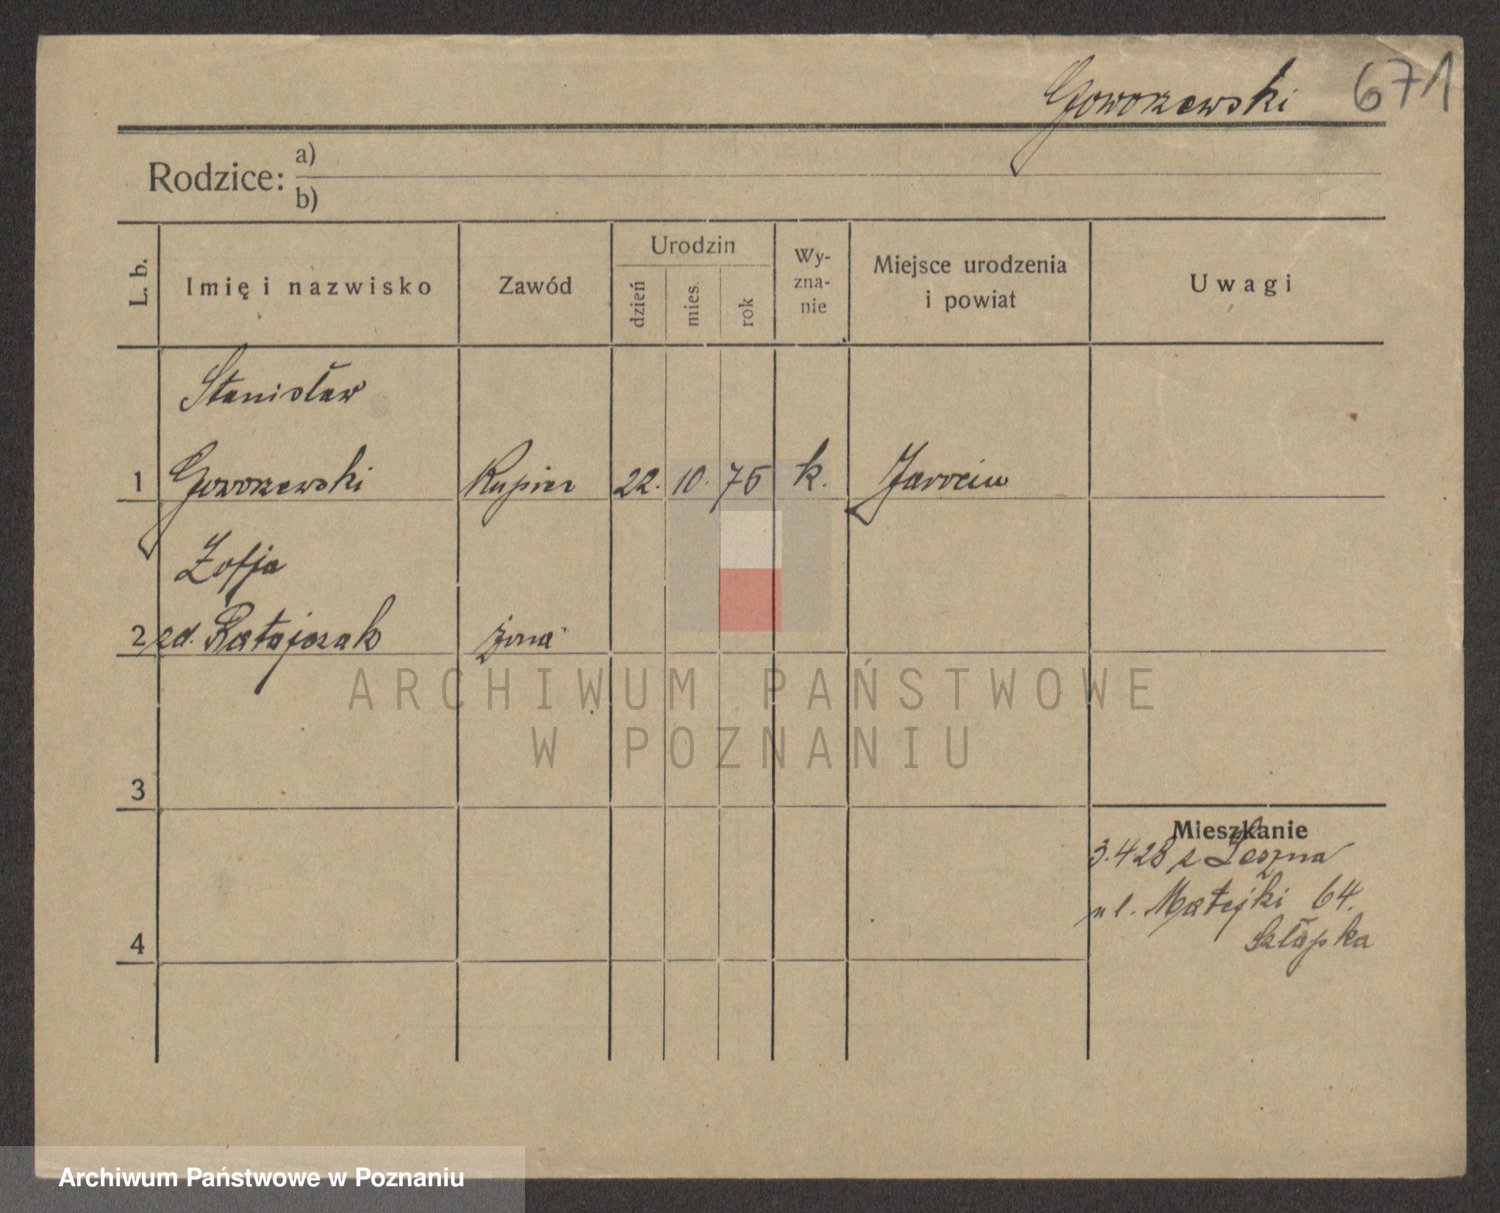 Goworzewski 671
Rodzice: a)
b)
L. b.
Imię i nazwisko
Zawód
Urodzin
dzień
mies.
rok
Wy-
zna-
nie
Miejsce urodzenia
i powiat
Uwagi
Stanisław
1 Goworzewski Kupiec 22. 10. 75 k. Jarocin
Zofja
2 zd. Ratajczak żona
3
4
Mieszkanie
3.4 28 z Leszna
ul. Matejki 64.
Szłapka
ARCHIWUM PAŃSTWOWE
W POZNANIU
Archiwum Państwowe w Poznaniu